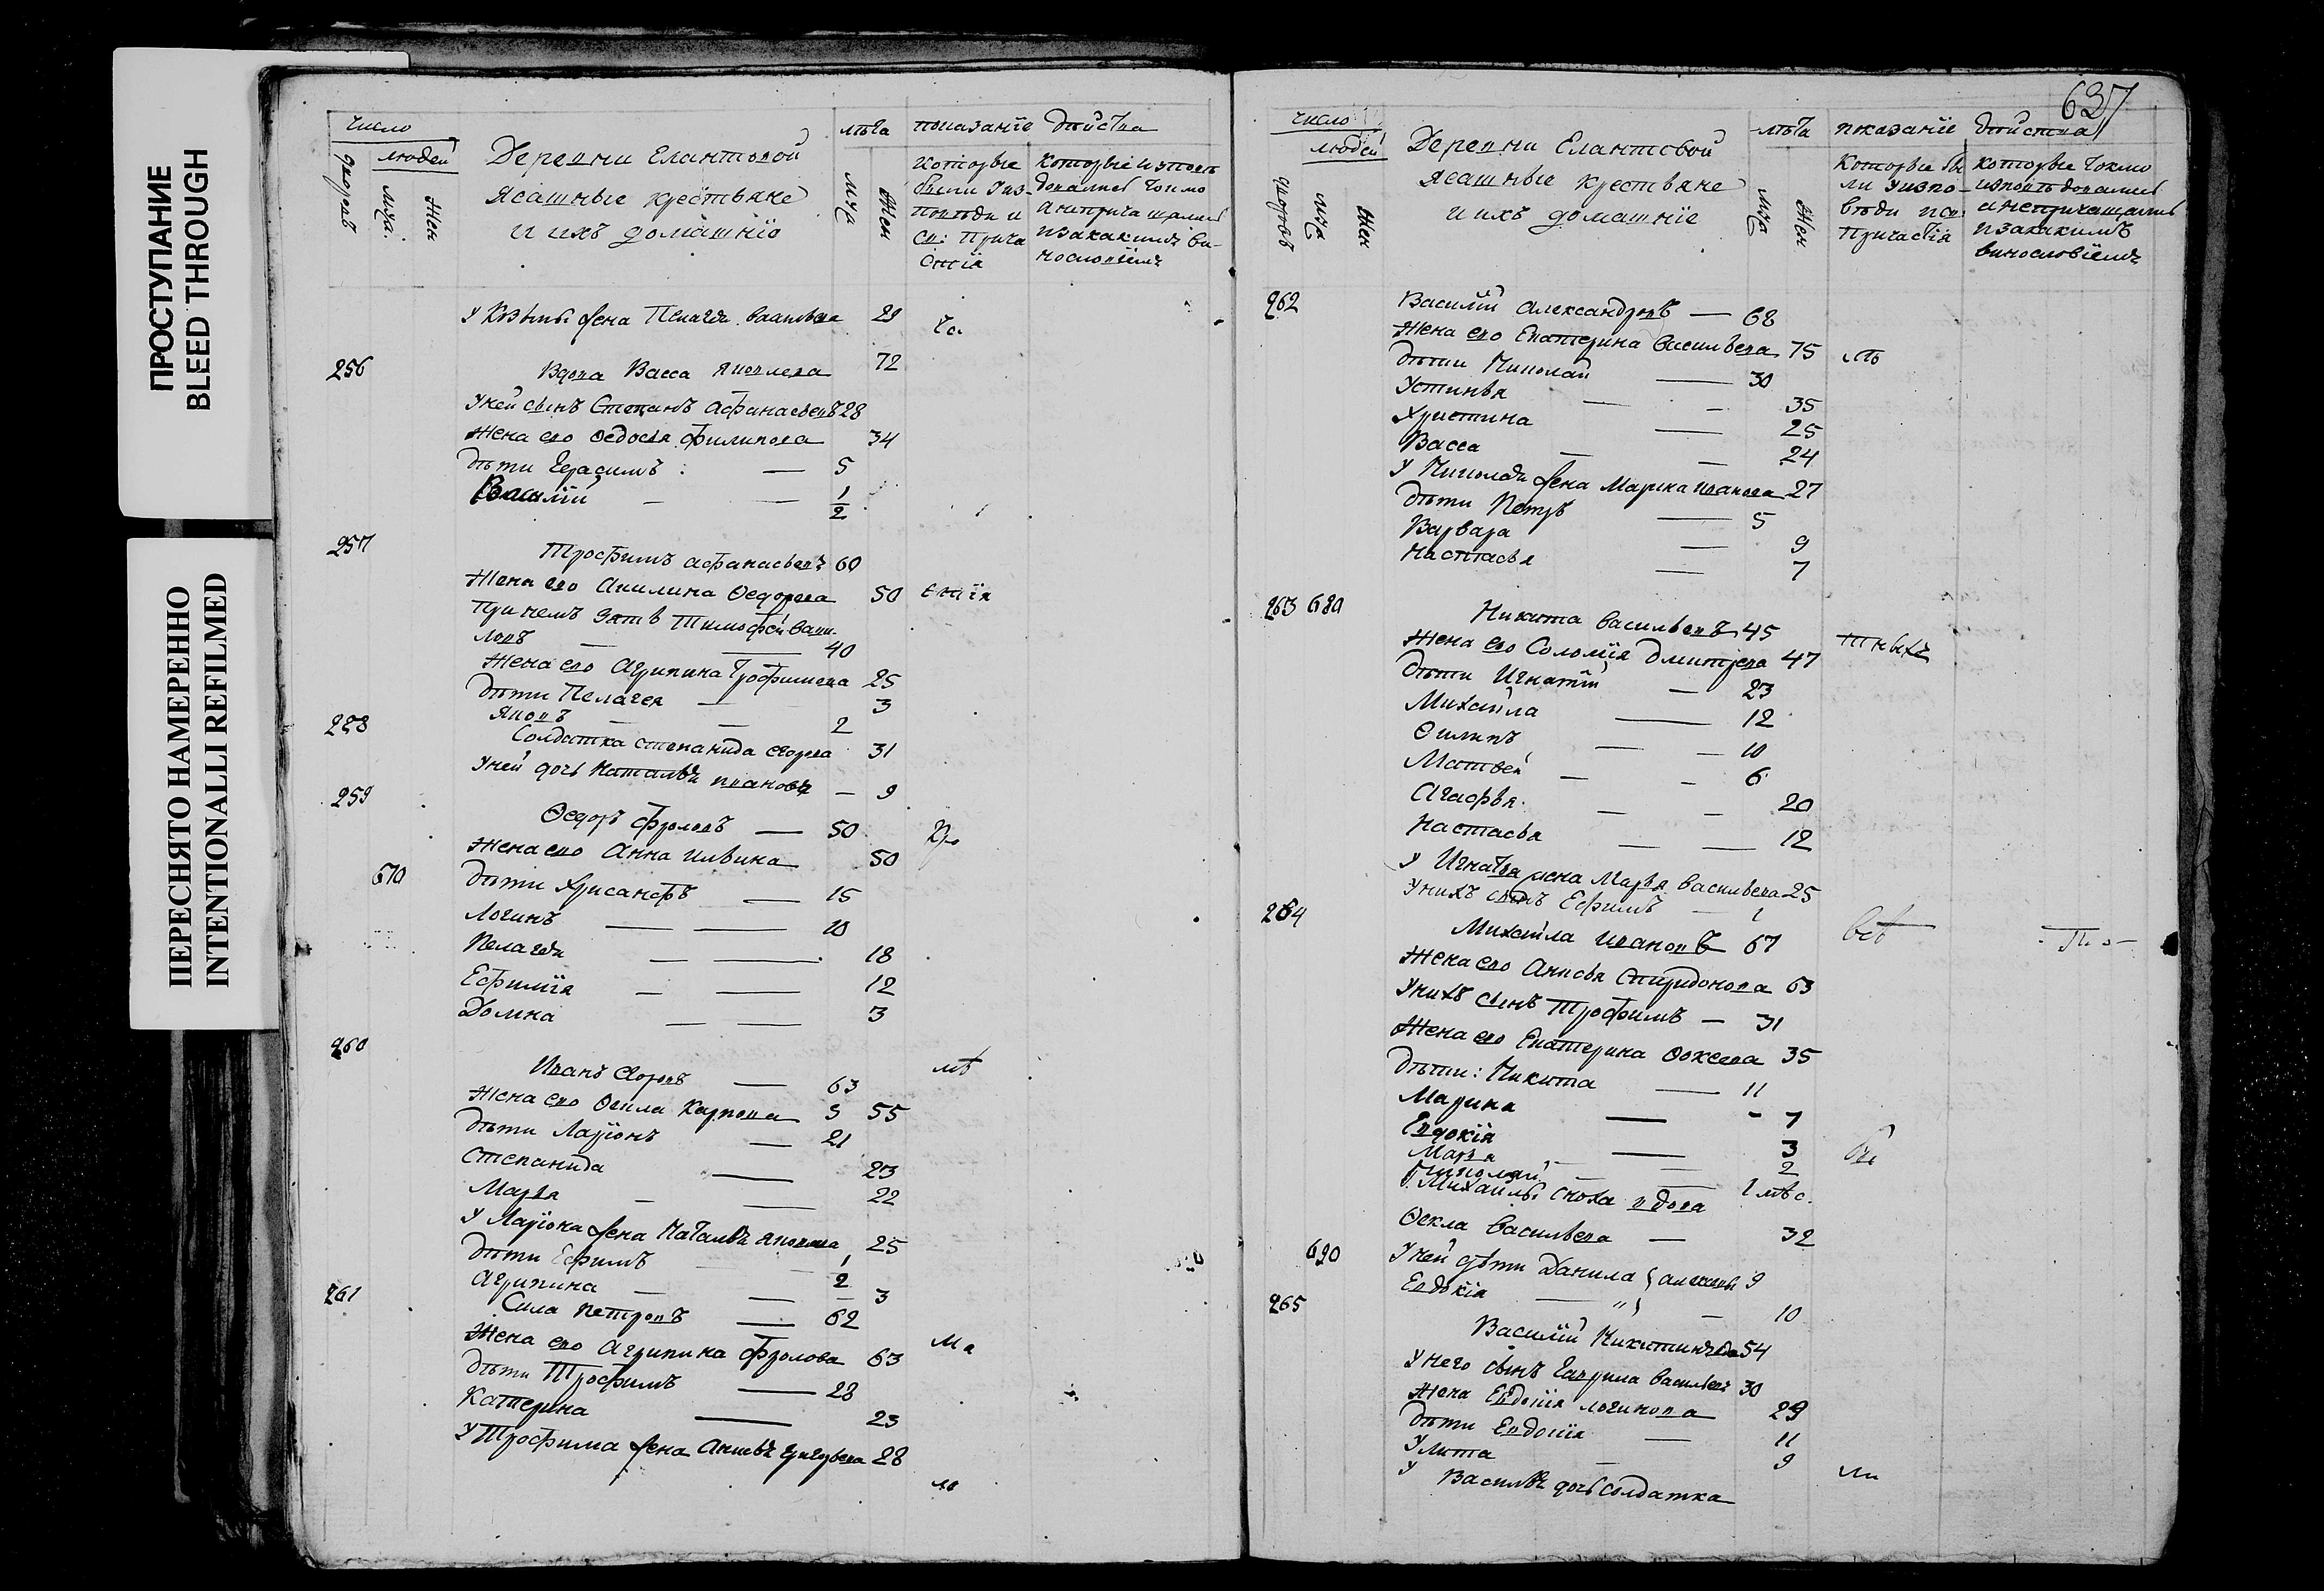 ПРОСТУПАНИЕ
BLEED THROUGH
ПЕРЕСНЯТО НАМЕРЕННО
INTENTIONALLI REFILMED
число
людей
дворовъ
муж.
жен
Деревни Елантовой
Ясашные крестьяне
и ихъ домашніе
лѣта
муж
жен
показаніе действа
которые
были у исповѣди и
св: прича
стія
которые исповѣ
дались токмо
а не причащались
и за какимъ ви-
нословіемъ
У Козьмы жена Пелагея Васильева 29
256
Вдова Васса Яковлева 72
У ней сынъ Степанъ Афанасьевъ 28
Жена его Ѳедосья Филипова 34
Дѣти Герасимъ — 5
Василій — 1/2
257
Трофимъ Афанасьевъ 60
Жена его Акилина Ѳедорова 50 стія
При немъ зять Тимофей Вави-
ловъ — 40
Жена его Агрипина Трофимова 25
Дѣти Пелагея — 3
Яковъ — 2
258
Солдатка Степанида Егорова 31
У ней дочь Наталья Иванова — 9
259
Ѳедоръ Фроловъ — 50
Жена его Анна Ильина 50
670
Дѣти Хрисанфъ — 15
Логинъ — 10
Пелагея — 18
Ефимія — 12
Домна — 3
260
Иванъ Егоровъ — 63
Жена его Ѳекла Карпова 55
Дѣти Ларіонъ — 21
Степанида — 23
Марья — 22
У Ларіона жена Наталья Яковлева 25
Дѣти Ефимъ — 1/2
Агрипина — 3
261
Сила Петровъ — 62
Жена его Агрипина Фролова 63
Дѣти Трофимъ — 28
Катерина — 23
У Трофима жена Анисья Григорьева 28
637
число
людей
дворовъ
муж
жен
Деревни Елантовой
Ясашные крестьяне
и ихъ домашніе
лѣта
муж
жен
показаніе действа
которые бы
ли у испо-
вѣди и св:
причастія
которые токмо
исповѣдовались
а не причащались
и за какимъ
винословіемъ
262
Василій Александровъ — 68
Жена его Екатерина Васильева 75
Дѣти Николай — 30
Устинья — 35
Христина — 25
Васса — 24
У Николая жена Марья Иванова 27
Дѣти Петръ — 5
Варвара — 9
Настасья — 7
263 680
Никита Васильевъ 45
Жена его Соломія Дмитрева 47
Дѣти Игнатій — 23
Михайла — 12
Ѳилипъ — 10
Матвей — 6
Агафья — 20
Настасья — 12
У Игнатья жена Марья Васильева 25
У нихъ сынъ Ефимъ — 1
264
Михайла Ивановъ 67
Жена его Анисья Спиридонова 63
У нихъ сынъ Трофимъ — 31
Жена его Екатерина 35
Дѣти: Никита — 11
Марина — 7
Евдокія — 3
Марья — 2
Николай — 1 мѣс.
Михайлы сноха вдова
Ѳекла Васильева — 32
690
У ней дѣти Данила 9
Евдокія — 〃 — 10
265
Василій Никитинъ 54
У него сынъ Гаврила Васильевъ 30
Жена Евдокія Логинова 29
Дѣти Евдокія — 11
Улита — 9
У Василья дочь солдатка